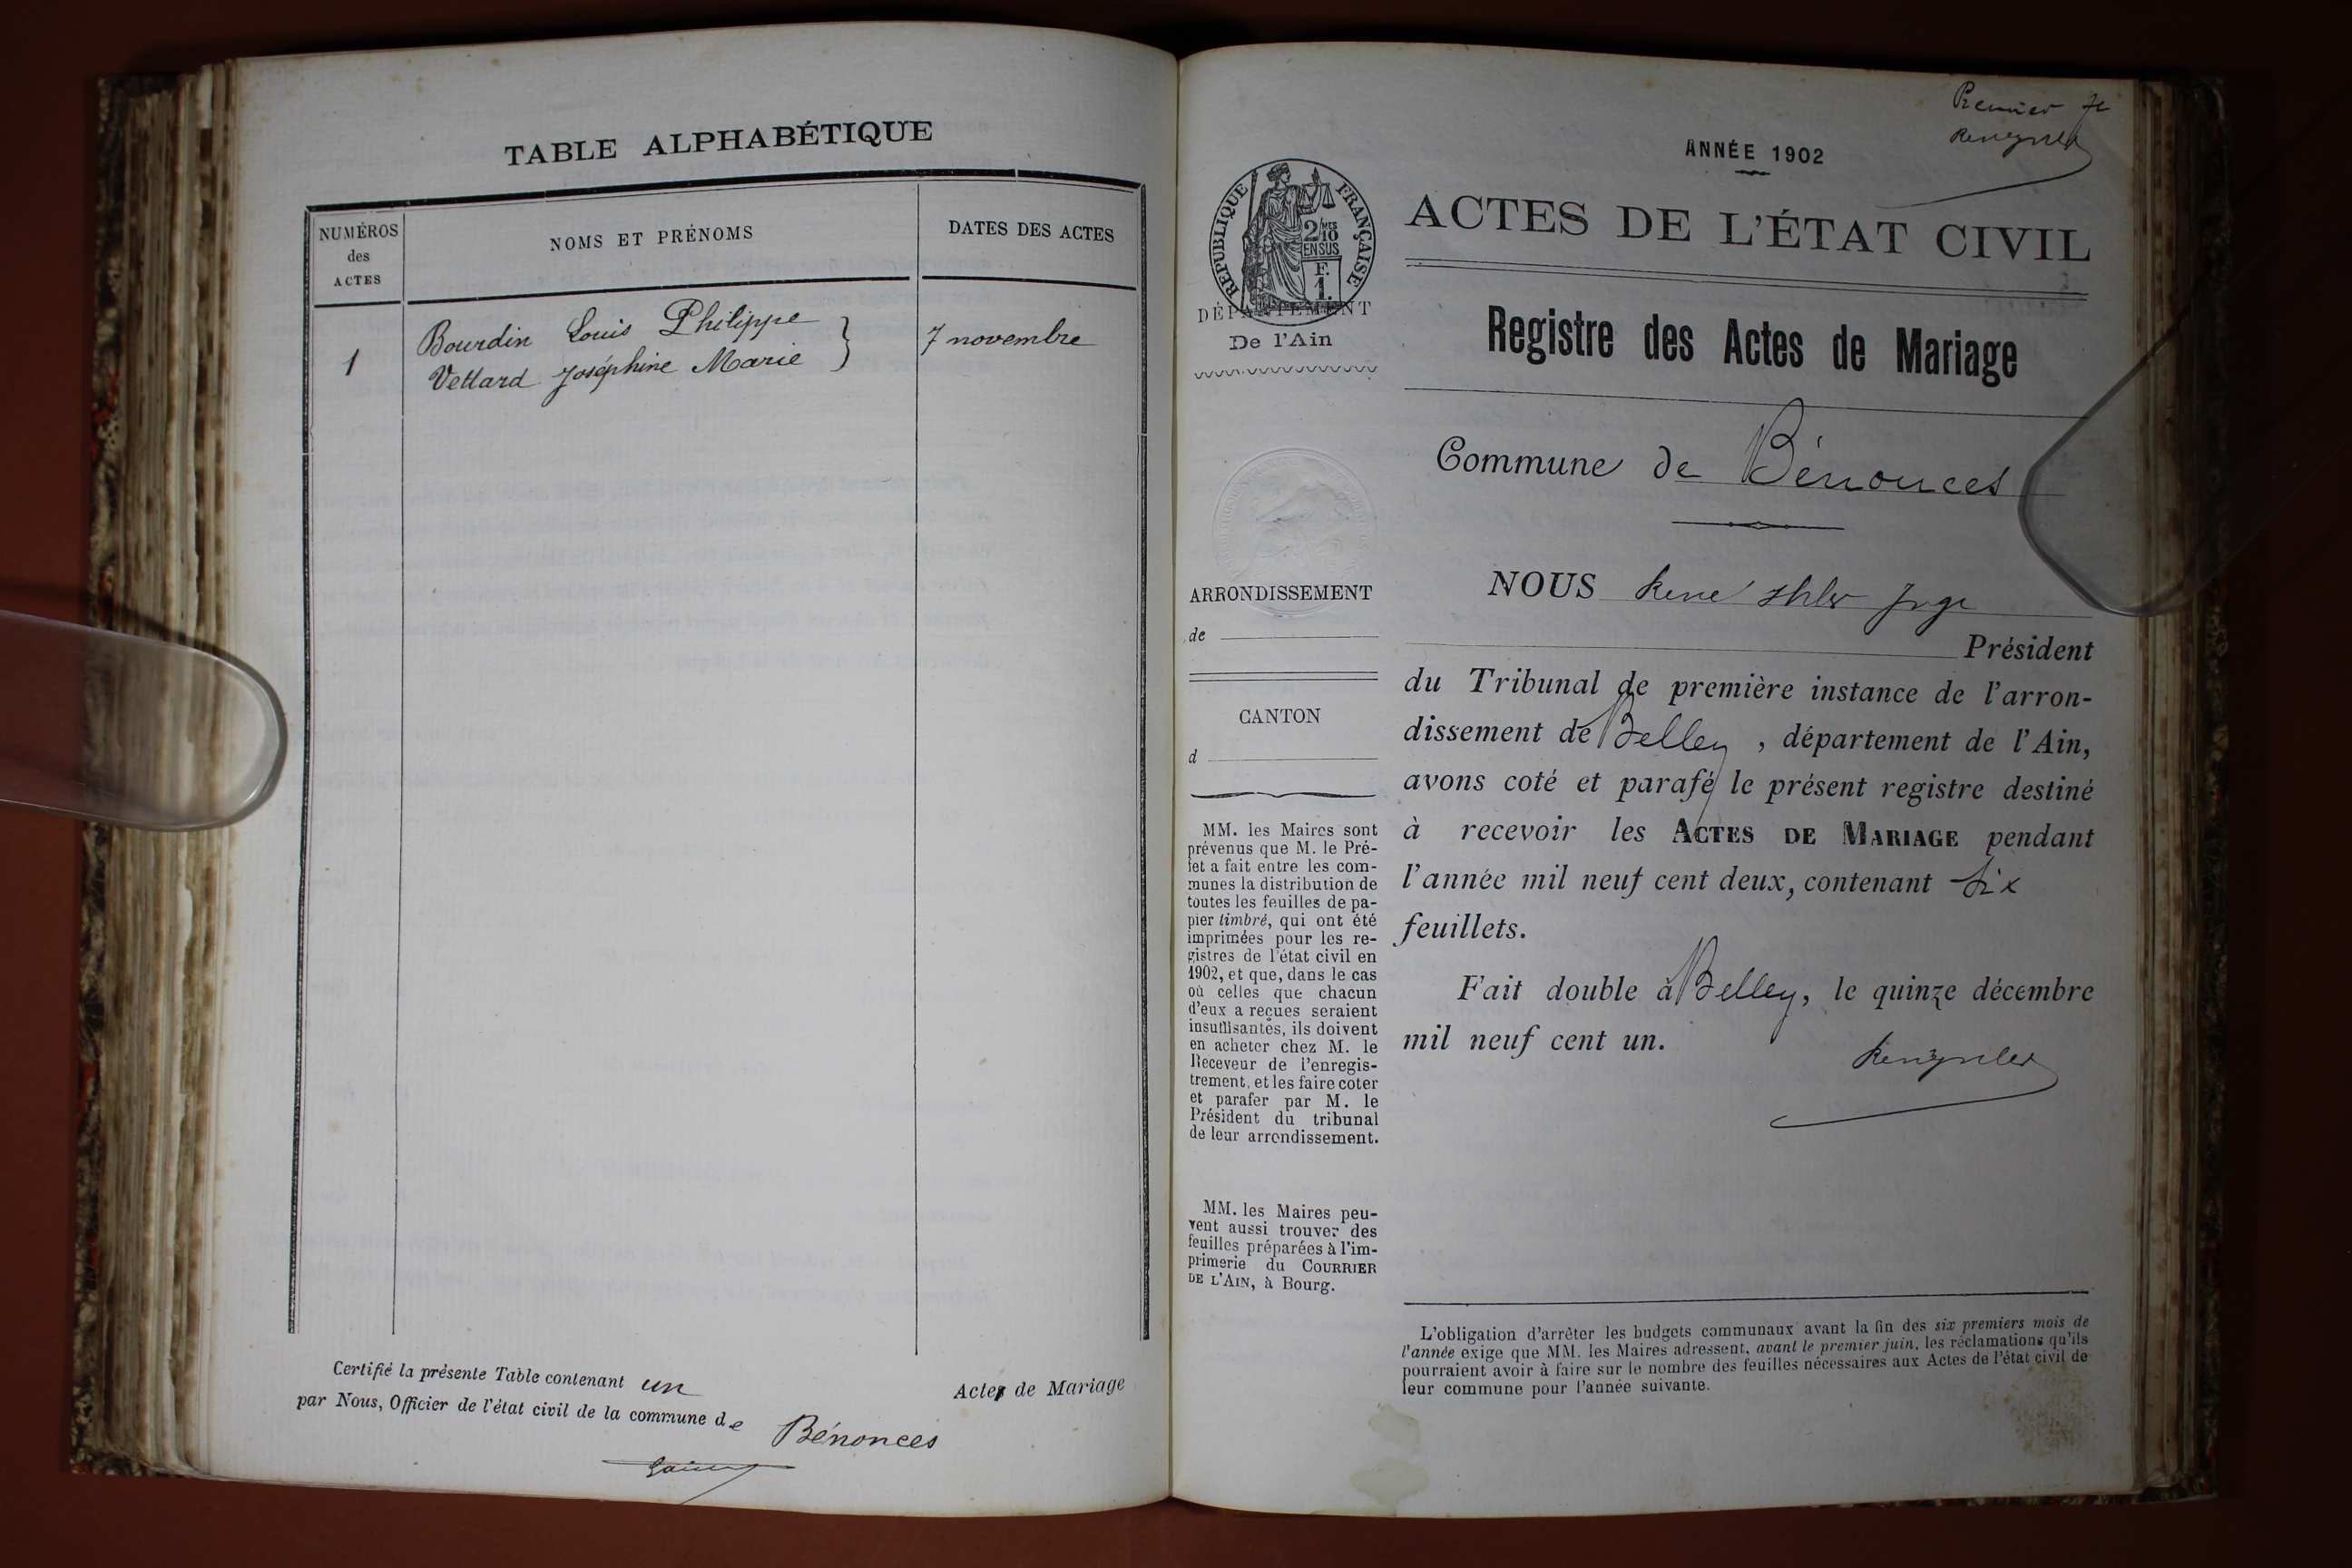 TABLE ALPHABÉTIQUE
NUMÉROS
des
ACTES
NOMS ET PRÉNOMS
DATES DES ACTES
1
Bourdin Louis Philippe
Vettard Joséphine Marie
7 novembre
Certifié la présente Table contenant un Actes de Mariage
par Nous, Officier de l'état civil de la commune de Bénonces
Premier
ANNÉE 1902
ACTES DE L'ÉTAT CIVIL
RÉPUBLIQUE FRANÇAISE
2/10MES
EN SUS
F.
1.
DÉPARTEMENT
De l'Ain
Registre des Actes de Mariage
Commune de Bénonces
ARRONDISSEMENT
de
CANTON
d
MM. les Maires sont
prévenus que M. le Pré-
fet a fait entre les com-
munes la distribution de
toutes les feuilles de pa-
pier timbré, qui ont été
imprimées pour les re-
gistres de l'état civil en
1902, et que, dans le cas
où celles que chacun
d'eux a reçues seraient
insuffisantes, ils doivent
en acheter chez M. le
Receveur de l'enregis-
trement, et les faire coter
et parafer par M. le
Président du tribunal
de leur arrondissement.
MM. les Maires peu-
vent aussi trouver des
feuilles préparées à l'im-
primerie du COURRIER
DE L'AIN, à Bourg.
NOUS René Juge
Président
du Tribunal de première instance de l'arron-
dissement de Belley, département de l'Ain,
avons coté et parafé le présent registre destiné
à recevoir les ACTES DE MARIAGE pendant
l'année mil neuf cent deux, contenant six
feuillets.
Fait double à Belley, le quinze décembre
mil neuf cent un.
L'obligation d'arrêter les budgets communaux avant la fin des six premiers mois de
l'année exige que MM. les Maires adressent, avant le premier juin, les réclamations qu'ils
pourraient avoir à faire sur le nombre des feuilles nécessaires aux Actes de l'état civil de
leur commune pour l'année suivante.